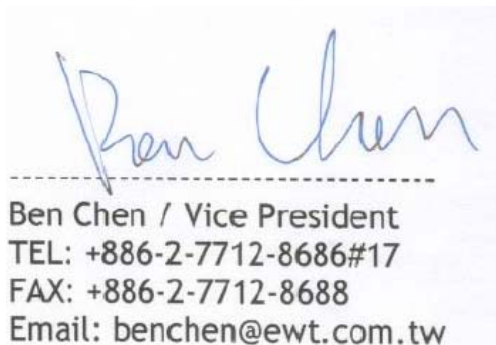 Ben Chen
Ben Chen / Vice President
TEL: +886-2-7712-8686#17
FAX: +886-2-7712-8688
Email: benchen@ewt.com.tw